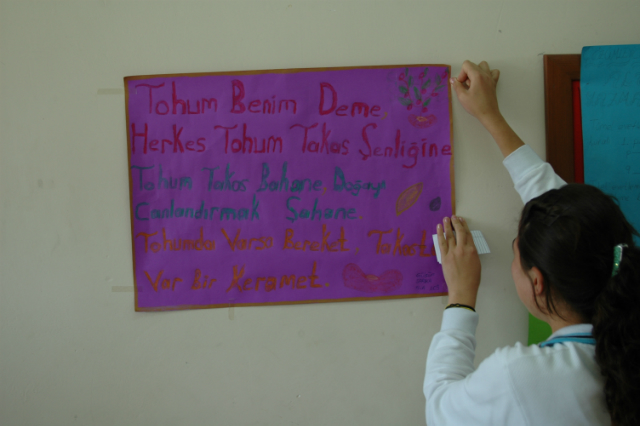 Tohum Benim Deme,
Herkes Tohum Takas Şenliğine
Tohum Takas Bahane, Doğayı
Canlandırmak Şahane.
Tohumda Varsa Bereket,
Var bir Keramet.